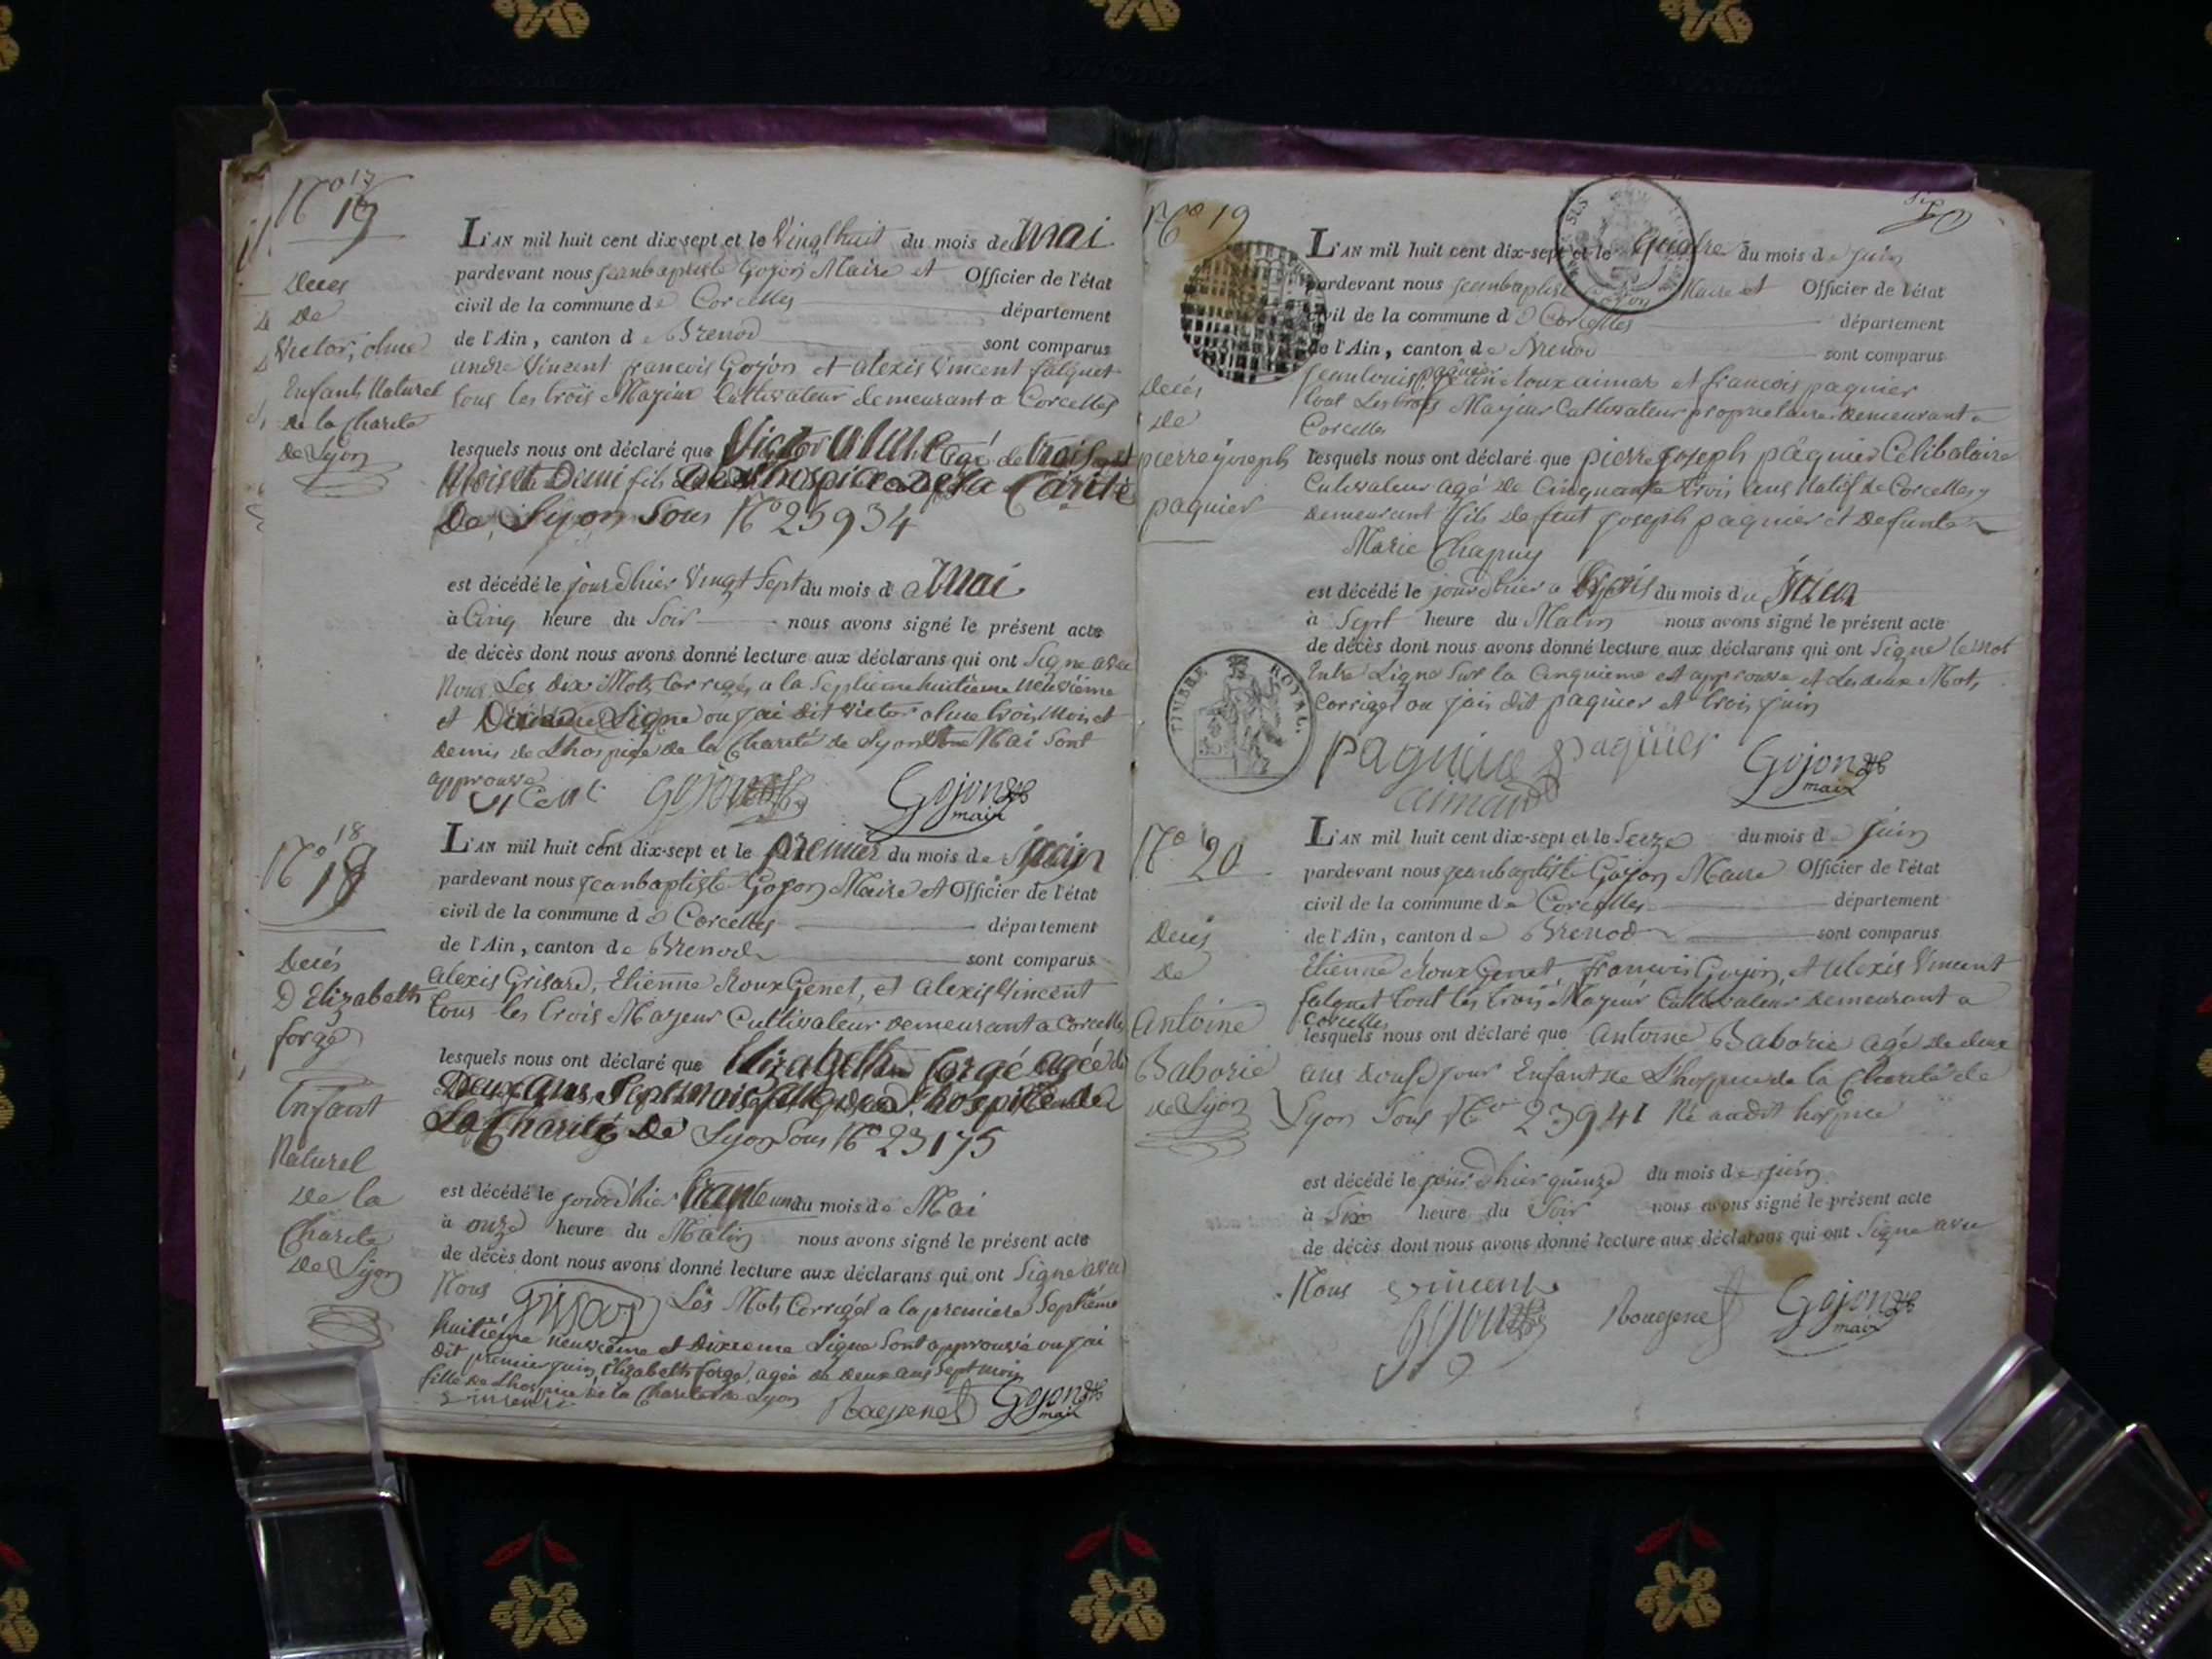 N.o 17
Deces
de
Victor, olme
Enfant Naturel
de la Charité
de Lyon
L'AN mil huit cent dix-sept et le Vingthuit du mois de Mai
pardevant nous jeanbaptiste Gojon Maire et Officier de l'état
civil de la commune de Corcelles département
de l'Ain, canton de Brenod sont comparus
andre Vincent francois Gojon et alexis Vincent falquet
tous les trois Majeur Cultivateur demeurant a Corcelles
lesquels nous ont déclaré que Victor olme agé de trois
Mois et Demi fils De Lhospice De la Carité
De Lyon Sous N.o 25934
est décédé le jourdhier Vingt Sept du mois de Mai
à Cinq heure du Soir nous avons signé le présent acte
de décès dont nous avons donné lecture aux déclarans qui ont Signe avec
Nous Les dix Mots Corrigés a la Septieme huitieme neuvième
et Dixieme Ligne ou jai dit Victor olme trois Mois et
demis de Lhospice de la Charité de Lyon Mai Sont
approuvé
Gojon
Gojon
maire
N.o 18
18
Decés
D Elizabeth
forgé
Enfant
Naturel
de la
Charite
de Lyon
L'AN mil huit cent dix-sept et le premier du mois de juin
pardevant nous jeanbaptiste Gojon Maire et Officier de l'état
civil de la commune de Corcelles département
de l'Ain, canton de Brenod sont comparus
alexis Grisard, Etienne Roux Genet, et alexis Vincent
tous les trois Majeur Cultivateur demeurant a Corcelles
lesquels nous ont déclaré que Elizabeth forgé agée de
Deux ans Sept mois fille de L'hospice de
La Charité De Lyon Sous N.o 23175
est décédé le jourdhier trante un du mois de Mai
à onze heure du Matin nous avons signé le présent acte
de décès dont nous avons donné lecture aux déclarans qui ont Signe avec
Nous Grisard Les Mots Corrigés a la premiere Septième
huitième neuvième et Dixieme Ligne Sont approuvé ou jai
dit premier juin Elizabeth forgé, agée de deux ans Sept mois
fille de Lhospice de la Charité de Lyon
Vincent Rougenet Gojon
maire
N.o 19
Decés
de
pierre joseph
paquier
L'AN mil huit cent dix-sept et le Quatre du mois de juin
pardevant nous jeanbaptiste Gojon Maire et Officier de l'état
civil de la commune de Corcelles département
de l'Ain, canton de Brenod sont comparus
jeanlouis paquier jean Roux aimar et francois paquier
tout Les trois Majeur Cultivateur proprietaire demeurant a
Corcelles
lesquels nous ont déclaré que pierre joseph paquier Celibataire
Cultivateur agé de Cinquante trois ans Natif de Corcelles y
demeurant fils de feut joseph paquier et defunte
Marie Chapuy
est décédé le jourdhier a trois du mois de juin
à Sept heure du Matin nous avons signé le présent acte
de décès dont nous avons donné lecture aux déclarans qui ont Signe le mot
Entre Ligne Sur la Cinquieme et approuvé et Les deux Mots
Corriget ou jais dit paquier et trois juin
TIMBRE ROYAL.
paquier paquier Gojon
aimard maire
N.o 20
Decés
de
antoine
Baborie
de Lyon
L'AN mil huit cent dix-sept et le Seize du mois de juin
pardevant nous jeanbaptiste Gojon Maire Officier de l'état
civil de la commune de Corcelles département
de l'Ain, canton de Brenod sont comparus
Etienne Roux Genet, francois Gojon, et alexis Vincent
falquet tout les trois Majeur Cultivateur demeurant a
Corcelles
lesquels nous ont déclaré que antoine Baborie agé de deux
ans douse jour Enfant de L'hospice de la Charité de
Lyon Sous N.o 23941 Né audit hospice
est décédé le jour dhier quinze du mois de juin
à Six heure du Soir nous avons signé le présent acte
de décès dont nous avons donné lecture aux déclarans qui ont Signe avec
Nous Vincent
Gojon Rougenet Gojon
maire